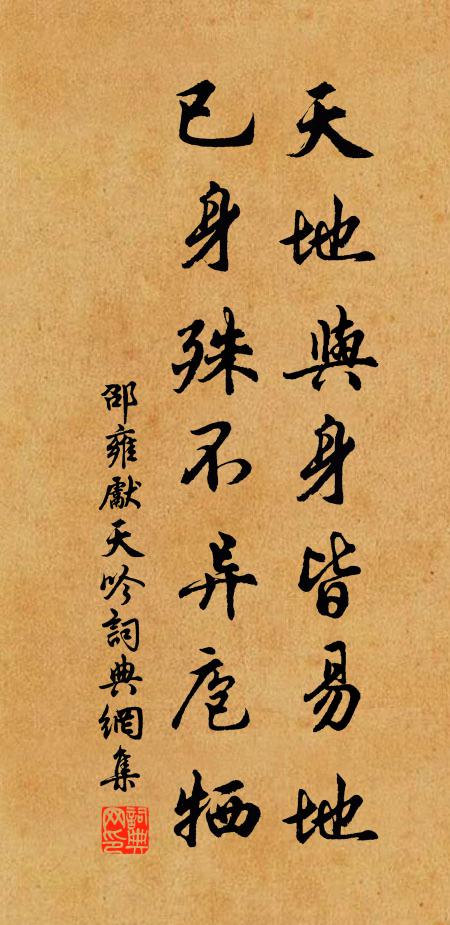 天地與身皆易地
已身殊不异庖牺
邵雍獻天吟詞典網集
詞典网印